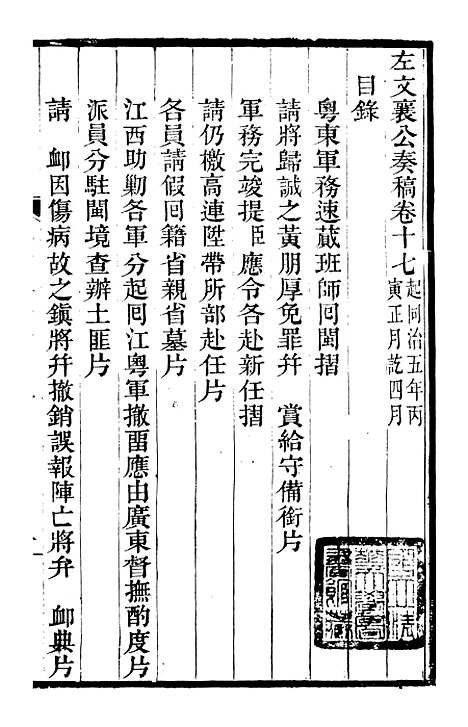 左文襄公奏稿卷十七起同治五年丙寅正月訖四月
目錄
粵東軍務速蕆班師囘閩摺
請將歸誠之黃朋厚免罪幷 賞給守備銜片
軍務完竣提臣應令各赴新任摺
請仍檄高連陞帶所部赴任片
各員請假囘籍省親省墓片
江西助勦各軍分起囘江粵軍撤畱應由廣東督撫酌度片
派員分駐閩境查辦土匪片
請 卹因傷病故之鎭將幷撤銷誤報陣亡將弁 卹典片